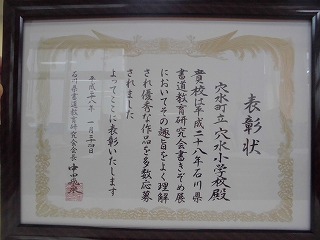 表彰状
穴水町立 穴水小学校殿
貴校は平成二十八年石川県
書道教育研究会書きぞめ展
においてその趣旨をよく理解
され優秀な作品を多数応募
されました
よってここに表彰いたします
平成二八年 一月二四日
石川県書道教育研究会会長